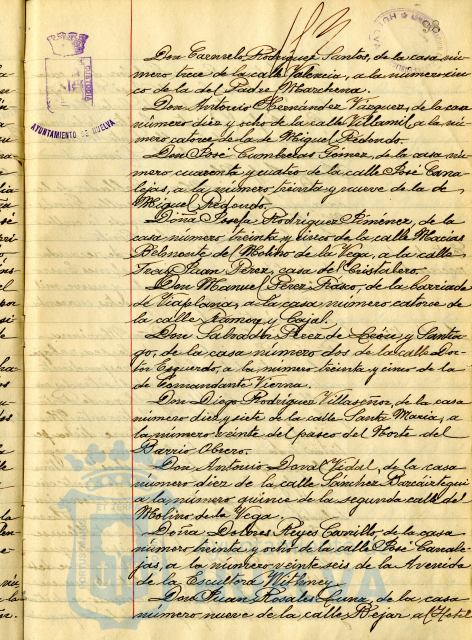 AYUNTAMIENTO DE HUELVA
Don Carmelo Rodríguez Santos, de la casa nú-
mero trece de la calle Valencia, a la número cin-
co de la del Padre Marchena.
Don Antonio Hernández Vázquez, de la casa
número diez y ocho de la calle Villamil a la nú-
mero catorce de la de Miguel Redondo.
Don José Cumbreras Gómez, de la casa nú-
mero cuarenta y cuatro de la calle José Cana-
lejas, a la número treinta y nueve de la de
Miguel Redondo.
Doña Josefa Rodríguez Jiménez, de la
casa número treinta y cinco de la calle Macías
Belmonte de Molino de la Vega, a la calle
Fray Juan Pérez, casa del Cristalero.
Don Manuel Pérez Frasco, de la barriada
de Viaplana, a la casa número catorce de
la calle Ramón y Cajal.
Don Salvador Pérez de León y Santia-
go, de la casa número dos de la calle Doc-
tor Esquerdo, a la número treinta y cinco de la
de Comandante Vierna.
Don Diego Rodríguez Villaseñor, de la casa
número diez y siete de la calle Santa María, a
la número veinte del paseo del Norte del
Barrio Obrero.
Don Antonio Doval Vidal, de la casa
número diez de la calle Sánchez Barcáiztegui
a la número quince de la segunda calle del
Molino de la Vega.
Doña Dolores Reyes Carrillo, de la casa
número treinta y ocho de la calle José Canale-
jas, a la número veinte seis de la Avenida
de la Escultora Withney.
Don Juan Rosales Luna, de la casa
número nueve de la calle Béjar a